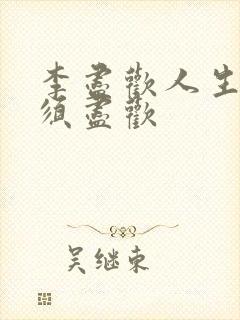 李盡歡人生
須盡歡
吴继東